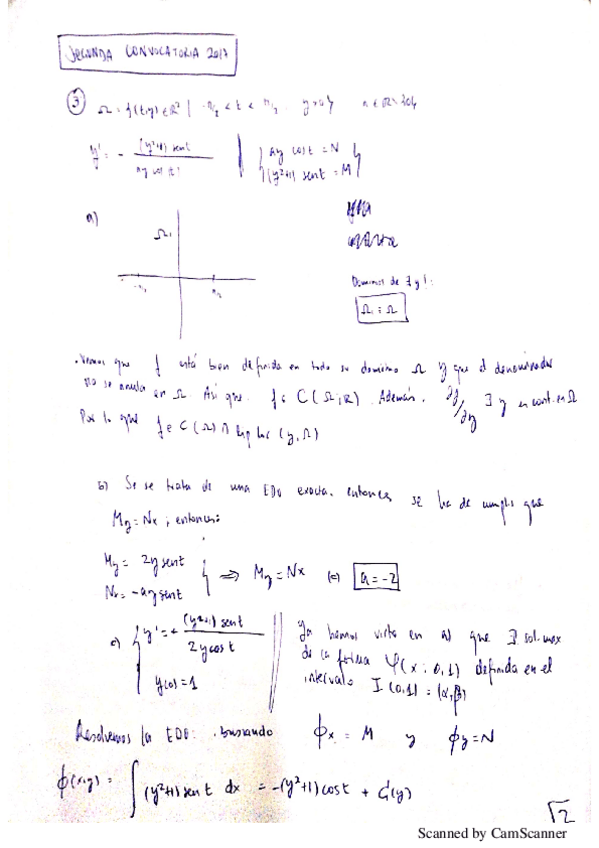 SEGUNDA CONVOCATORIA 2017
③ Ω = {(t,y) ∈ R² | -π/2 < t < π/2, y>0} a ∈ R-{0}
y' = - (y²+1) sent / ay cos(t) | { ay cost = N
(y²+1) sent = M }
a)
Ω₁
-π/2 π/2
Dominios de ∃ y !:
Ω₁ = Ω
. Vemos que f está bien definida en todo su dominio Ω y que el denominador
no se anula en Ω. Así que f ∈ C(Ω;R). Además, ∂f/∂y ∃ y es cont. en Ω
Por lo que f ∈ C(Ω) ∩ Lip loc (y, Ω)
b) Si se trata de una EDO exacta, entonces se ha de cumplir que
My = Nx ; entonces:
My = 2y sent
Nx = -ay sent } ⟹ My = Nx (=) a = -2
c) { y' = + (y²+1) sent / 2y cost
y(0) = 1
Ya hemos visto en a) que ∃ sol. max
de la forma φ(x; 0,1) definida en el
intervalo I(0,1) = (α,β)
Resolvemos la EDO: buscando ϕx = M y ϕy = N
ϕ(x,y) = ∫ (y²+1) sen t dx = -(y²+1) cost + G(y)
√2
Scanned by CamScanner